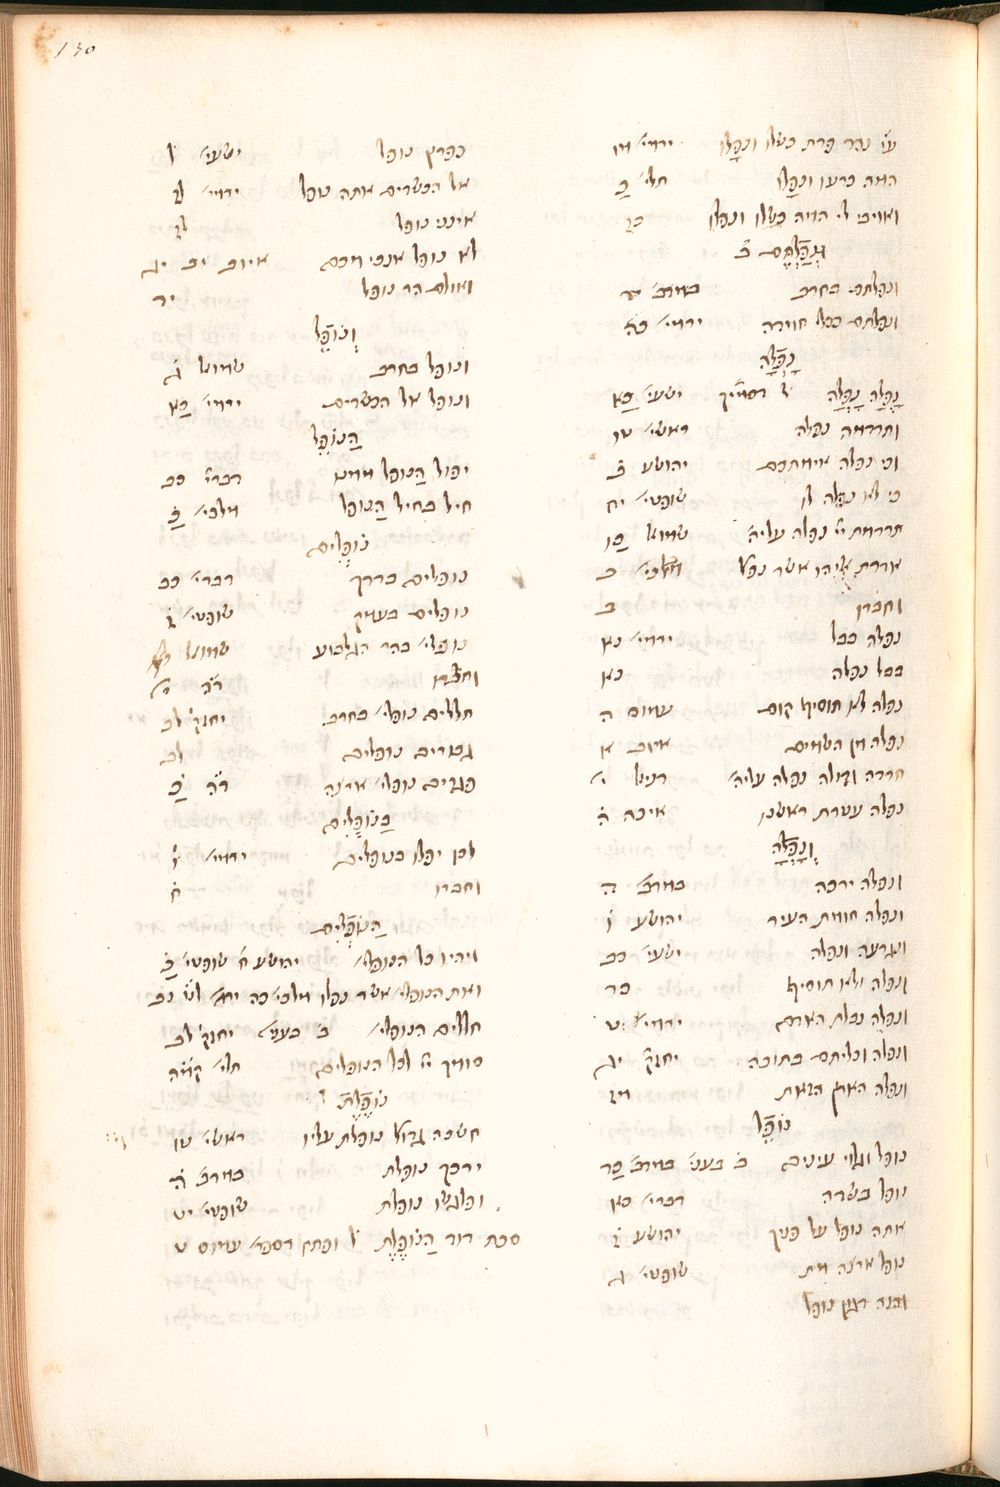 130
ע׳׳י נהר פרת כשלו ונפלו ירמי׳ מו
המה כרעו ונפלו תלי׳ כ
ואויבי לי המה כשלו ונפלו כז
וּנְפַלְתֶּם ב׳
ונפלתם בחרב במדב׳ יד
ונפלתם ככלי חמדה ירמי׳ כה
נָפְלָה
נָפְלָה נָפְלָה ישעי׳ כא
ותרדמה נפלה ראשי׳ טו
וכי נפלה אימתכם יהושע ב
כי לא נפלה לו שופטי׳ יח
תרדמת יי׳ נפלה עליה׳ שמואל כו
אדרת אליהו אשר נפל׳ מלכי׳ ב
וחברו ב
נפלה בבל ירמי׳ נא
בבל נפלה נא
נפלה לא תוסיף קום עמוס ה
נפלה מן השמים איוב א
חרדה גדולה נפלה עליה׳ דניאל י׳
נפלה עטרת ראשנו איכה ה
וְנָפְלָה
ונפלה ירכה במדב׳ ה
ונפלה חומת העיר יהושע ו
ונגדעה ונפלה ישעי׳ כב
ונפלה ולא תוסיף כד
ונפלה נבלת האדם ירמי׳ ט
ונפלה וכליתם בתוכה יחזק׳ יג
ונפלה הארץ הזאת מז
נוֹפֵל
נופל וגלוי עינים ב׳ בעני׳ במדב׳ כד
נופל בשדה דברי׳ כא
אתה נופל על פניך יהושע ז
נופל ארצה מת שופטי׳ ג
והנה דגון נופל
כפרץ נופל ישעי׳ ל
אל הכשדים אתה נופל ירמי׳ לז
אינני נופל לז
לא נופל אנכי מכם איוב יב יג
ואולם הר נופל יד
וְנוֹפֵל
ונופל בחרב שמואל ג
ונופל אל הכשדים ירמי׳ כא
הַנוֹפֵל
יפול הַנופל ממנו דברי׳ כב
חיל כחיל הַנופל מלכי׳ כ
נוֹפְלִים
נופלים בדרך דברי׳ כב
נופלים בעמק שופטי׳ ז
נופלי׳ בהר הגלבוע שמואל
וחברו ד׳׳ה י׳
חללים נופלי׳ בחרב יחזק׳ לב
גבורים נופלים לב
פגרים נופלי׳ ארצה ד׳׳ה כ
בַנוֹפְלִים
לכן יפלו בנופלים ירמי׳ ו
וחברו ח
הַנוֹפְלִים
ויהיו כל הנופלי׳ יהושע ח שופטי׳ כ
ואת הנופלי׳ אשר נפלו מלכי׳ כה
חללים הנופלי׳ ב׳ בעני׳ יחזק׳ לב
סומך יי׳ לכל הנופלים תלי׳ קמה
נוֹפֶלֶת
חשכה גדול׳ נופלת עליו ראשי׳ טו
ירכך נופלת במדב׳ ה
ופלגשו נופלת שופטי׳ יט
סכת דוד הַנוֹפֶלֶת עמוס ט